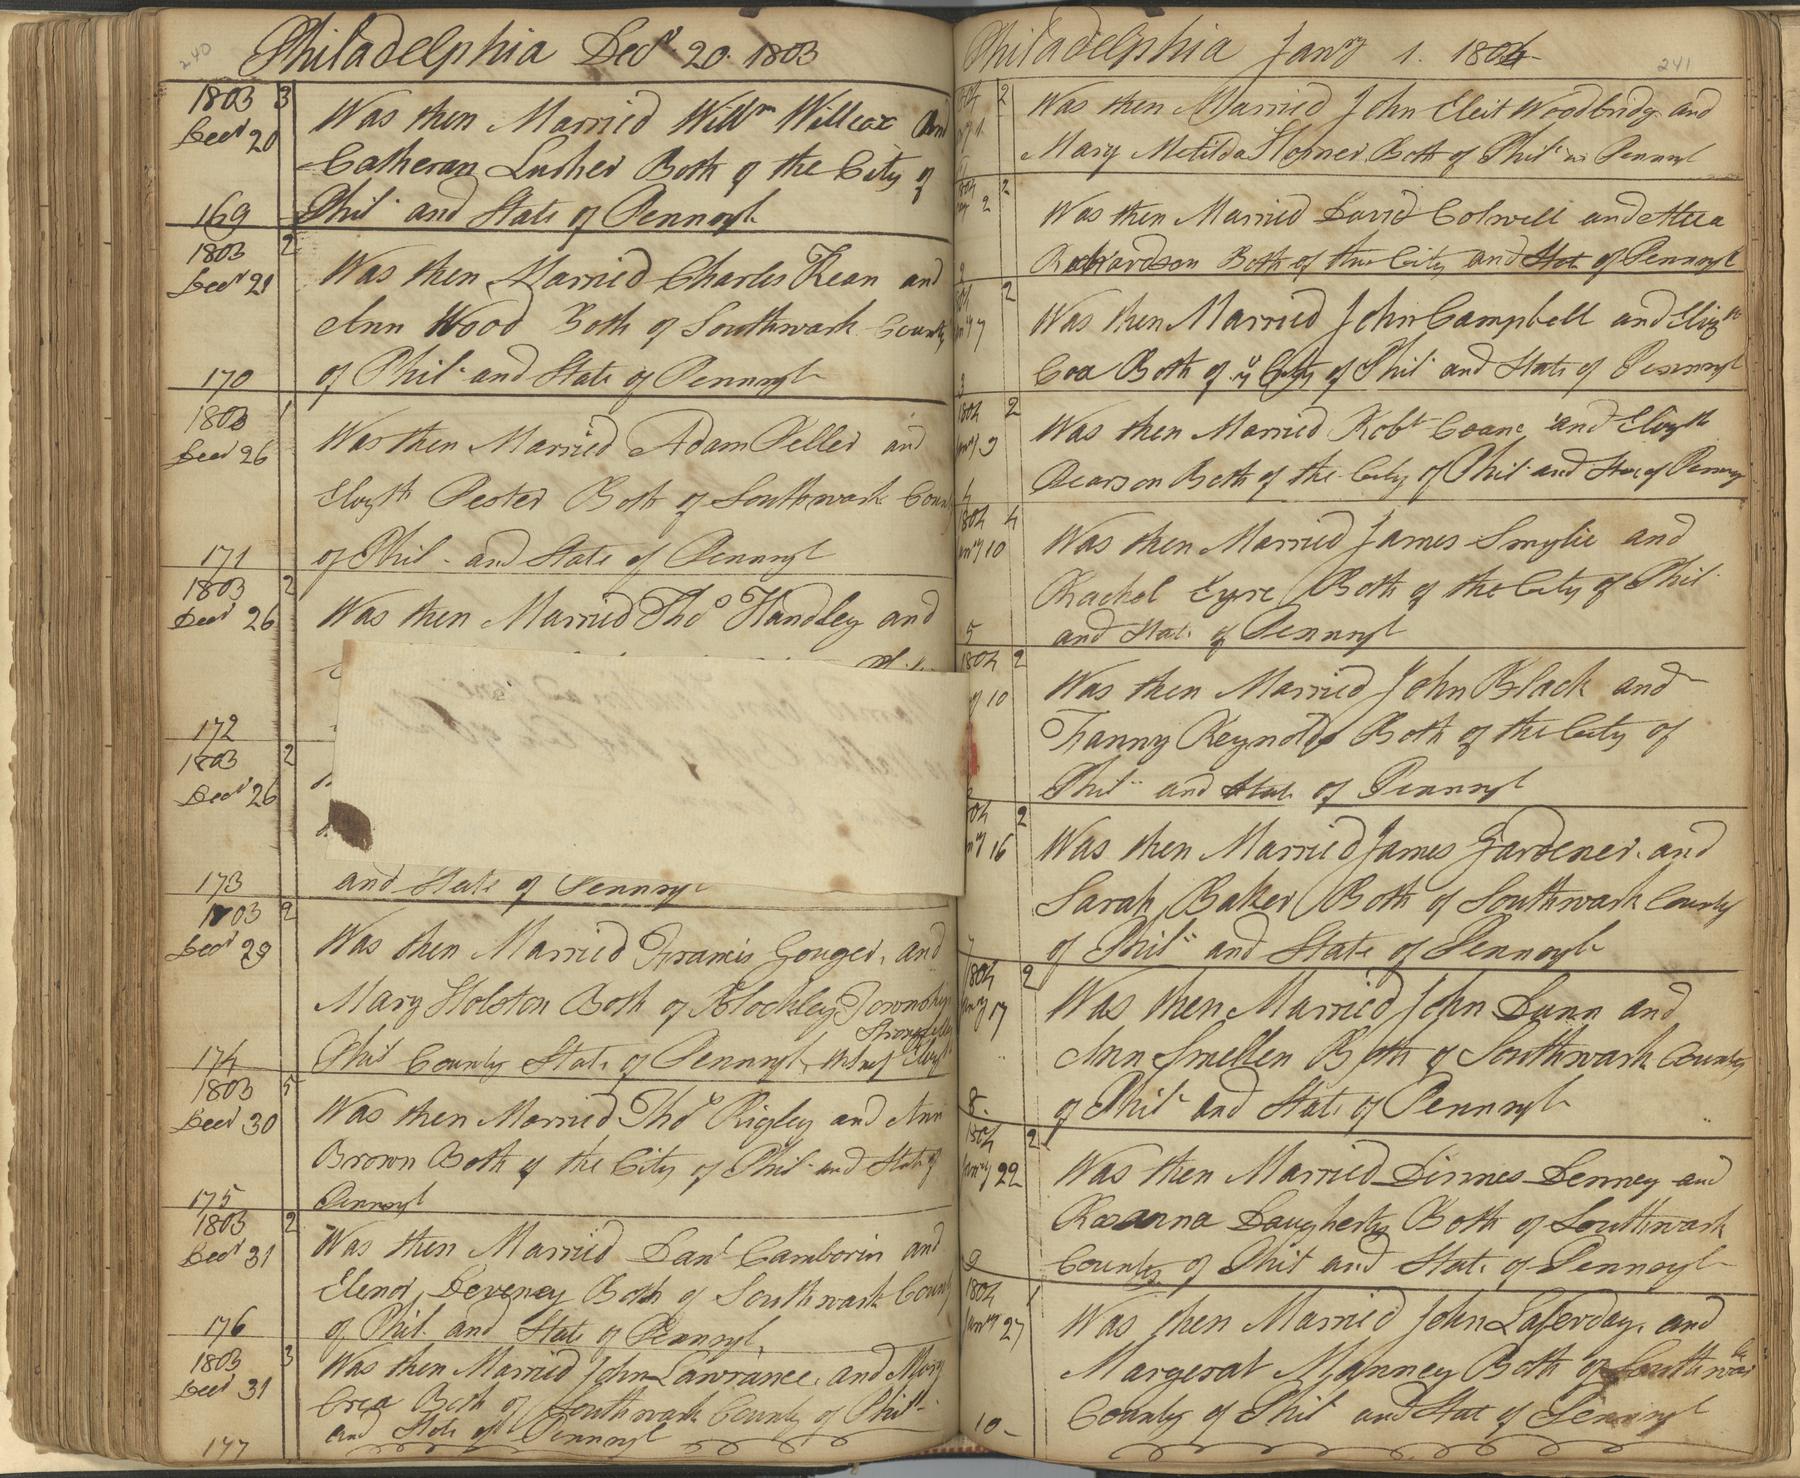 240
Philadelphia Decr 20. 1803
1803 3
Decr 20
Was then Married Willm Willcox And
Catheran Lusher Both of the City of
169 Phil. and State of Pennsyl
1803 2
Decr 21
Was then Married Charles Kean and
Ann Wood Both of Southwark County
170 of Phil. and State of Pennsyl
1803 1
Decr 26
Was then Married Adam Peller and
Elizth Pester Both of Southwark County
171 of Phil. and State of Pennsyl
1803 2
Decr 26
Was then Married Tho Handley and
172
1803 2
Decr 26
173 and State of Pennsyl
1803 2
Decr 29
Was then Married Francis Gouger, and
Mary Holston Both of Blockley Township
174 Phil County State of Pennsyl
1803 5
Decr 30
Was then Married Tho Rigley and Ann
Brown Both of the City of Phil. and State of
175 Pennsyl
1803 2
Decr 31
Was then Married Danl Camborin and
Elenor Deveney Both of Southwark County
176 of Phil. and State of Pennsyl
1803 3
Decr 31
Was then Married John Lawrance and Mary
Crea Both of Southwark County of Phil
and State of Pennsyl
177
Philadelphia Jany 1. 1804
241
2
Was then Married John Eleit Woodbridg and
Mary Metilda Horner Both of Phil in Pennsyl
2
2
Was then Married David Colwell and
Both of the City and State of Pennsyl
2
2
7
Was then Married John Campbell and Elizth
Cox Both of ye City of Phil and State of Pennsyl
3
1804 2
9
Was then Married Robt Coane and Elizth
Pearson Both of the City of Phil and State of Pennsy
4
1804 4
10
Was then Married James Smylie and
Rachel Eyre Both of the City of Phil
and State of Pennsyl
5
1804 2
10
Was then Married John Black and
Fanny Reynolds Both of the City of
Phil and State of Pennsyl
2
16
Was then Married James Gardener and
Sarah Baker Both of Southwark County
of Phil and State of Pennsyl
7
1804 2
17
Was then Married John Dunn and
Ann Smellen Both of Southwark County
of Phil and State of Pennsyl
8.
1804 2
22
Was then Married Dinnes Denney and
Rosanna Daugherty Both of Southwark
County of Phil and State of Pennsyl
9
1804 1
27
Was then Married John Laferday and
Margerat Manney Both of Southwark
County of Phil and State of Pennsyl
10